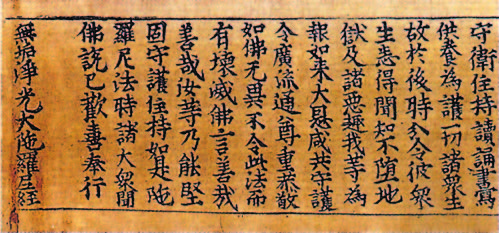 守衛住持讀誦書寫
供養為護一切諸衆生
故於後時分令彼衆
生悉得聞知不墮地
獄及諸惡趣我等為
報如来大恩咸共守護
令廣流通尊重恭敬
如佛无異不令此法而
有壞滅佛言善哉
善哉汝等乃能堅
固守護住持如是陁
羅尼法時諸大衆聞
佛說已歡喜奉行
無垢淨光大陁羅尼經